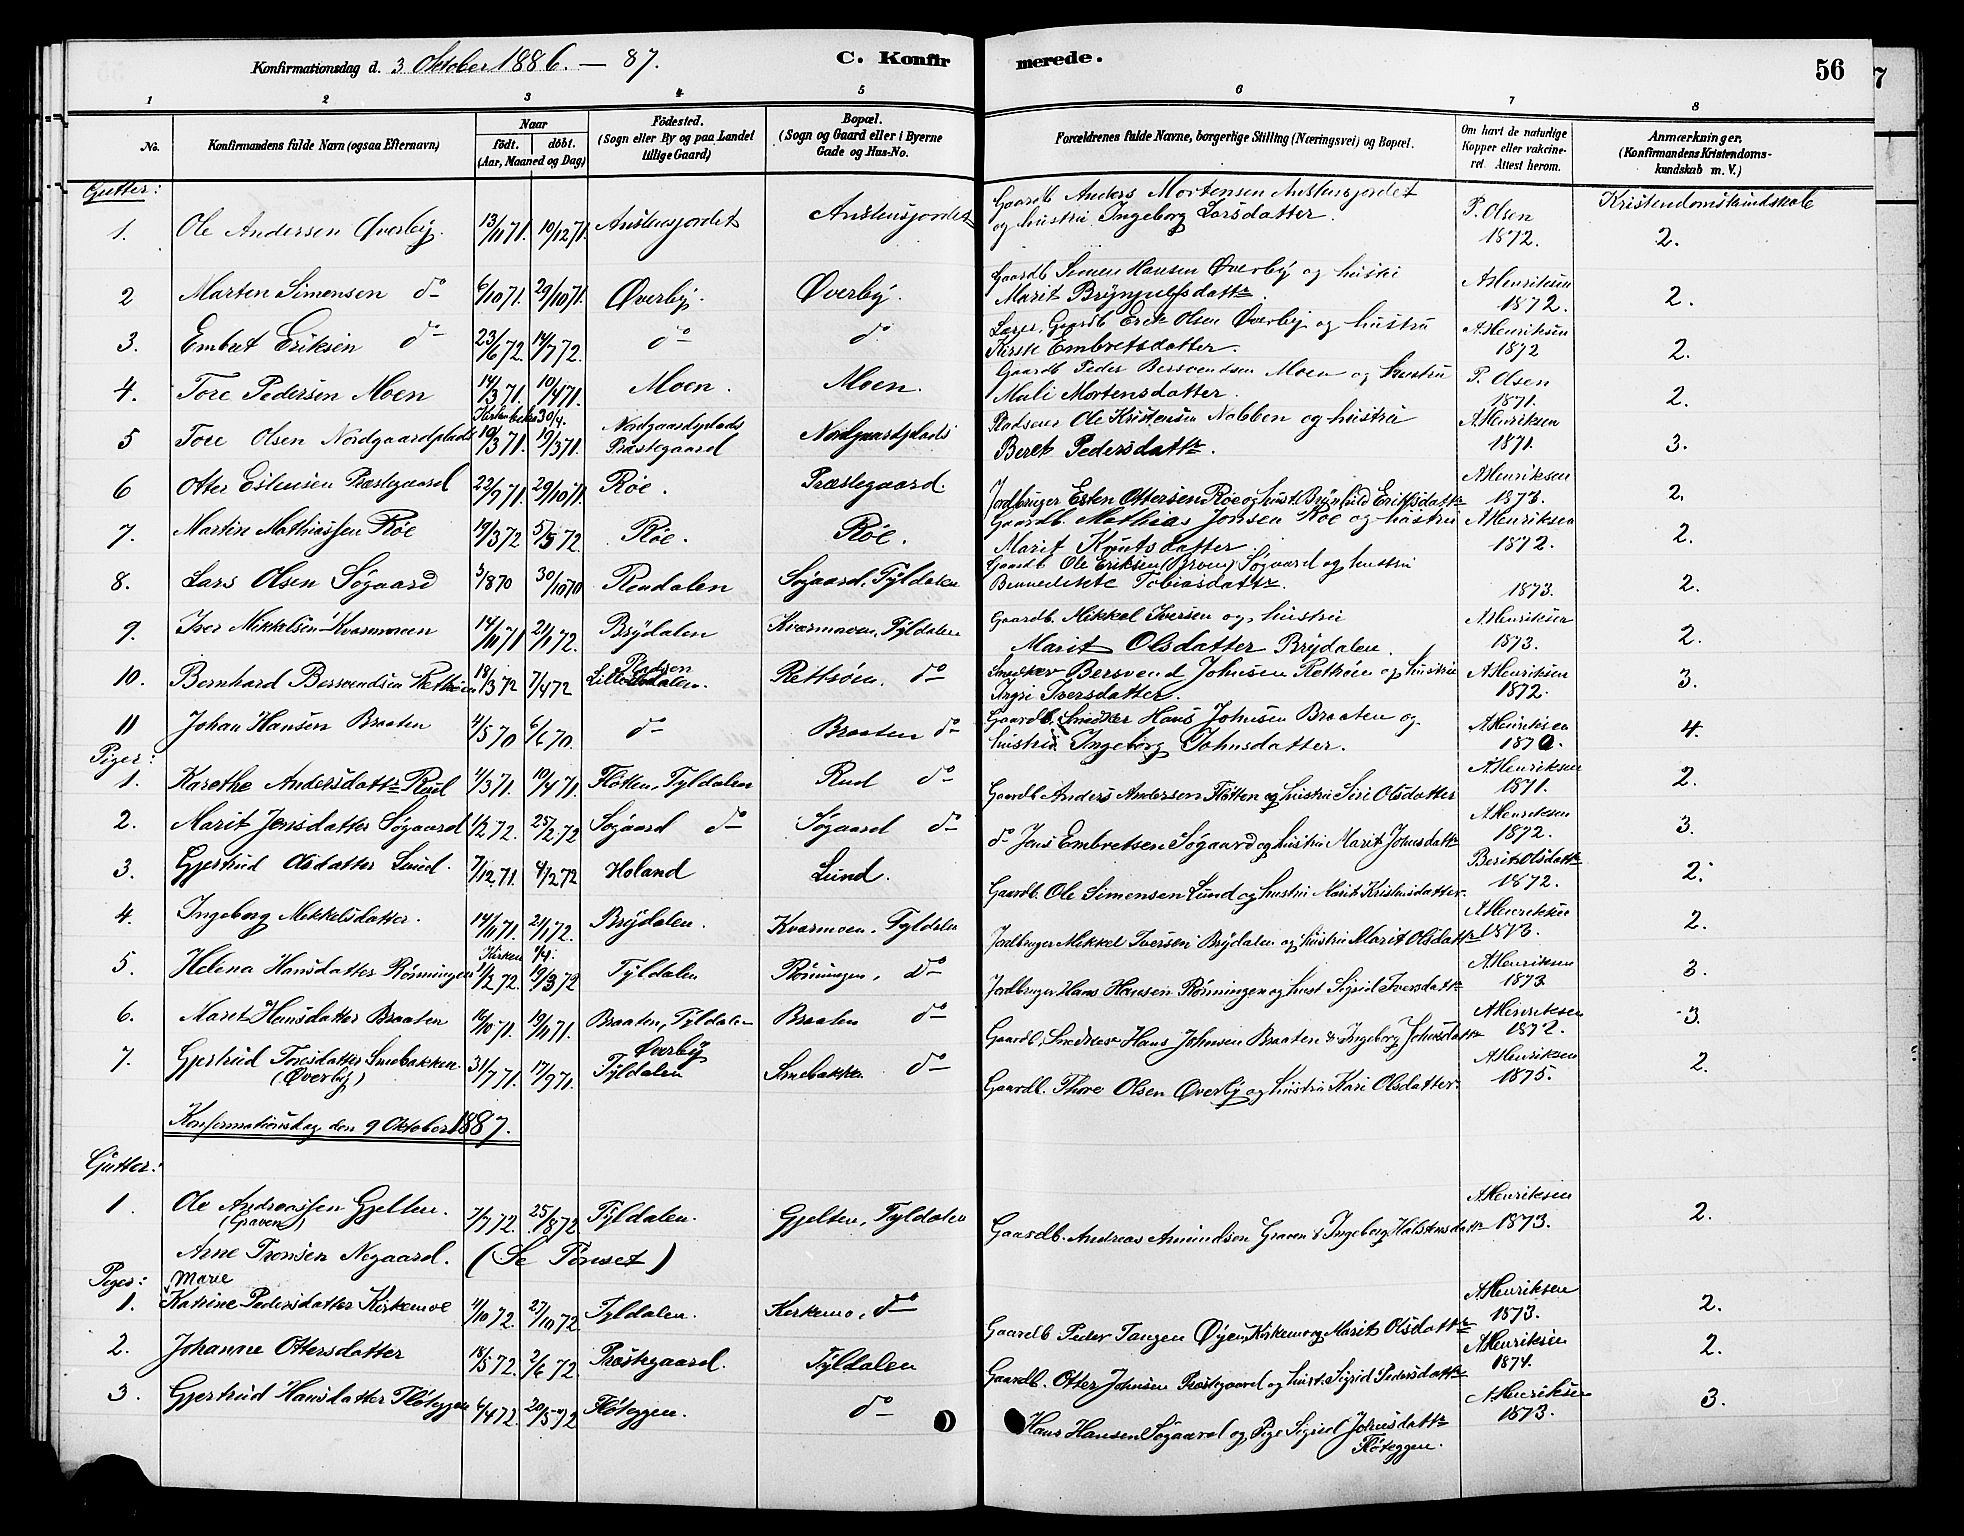 Konfirmationsdag d. 3 Oktober 1886. — 87. C. Konfirmerede. 56
1 2 3 4 5 6 7 8
No. Konfirmandens fulde Navn (ogsaa Efternavn) Naar født. døbt. (Aar, Maaned og Dag) Fødested. (Sogn eller By og paa Landet tillige Gaard) Bopæl. (Sogn og Gaard eller i Byerne Gade og Hus-No. Forældrenes fulde Navne, borgerlige Stilling (Næringsvei) og Bopæl. Om havt de naturlige Kopper eller vakcineret. Attest herom. Anmærkninger. (Konfirmandens Kristendomskundskab m. V.)
Gutter: Kristendomskundskab
1. Ole Andersen Øverby. 13/11 71. 10/12 71. Austensjordet Austensjordet Gaardb Anders Mortensen Austensjordet og hustru Ingeborg Larsdatter. P. Olsen 1872. 2.
2 Marten Simensen do 6/10 71. 29/10 71. Øverby. Øverby. Gaardb Simen Hansen Øverby og hustru Marit Brynjulfsdattr. A Henriksen 1872. 2.
3. Embret Eriksen do 23/6 72. 14/7 72. do do Lærer, Gaardb Erik Olsen Øverby og hustru Kirsti Embretsdatter. A. Henriksen 1872 2.
4. Tore Pedersen Moen 14/3 71. 10/4 71. Moen. Moen. Gaardb Peder Bersvendsen Moen og hustru Mali Mortensdatter. P. Olsen 1871. 2.
5 Tore Olsen Nordgaardplads 10/3 71. 19/3 71. 30/4. Nordgaardplads Præstegaard Nordgaardplads Pladseier Ole Kristensen Nabben og hustru Beret Pedersdattr. A. Henriksen 1871. 3.
6 Otter Estensen Præstegaard 22/9 71. 29/10 71. Røe. Præstegaard. Jordbruger Esten Ottersen Røe og hust. Brynhild Eriksdattr A Henriksen 1873. 2.
7. Martin Mathiassen Røe 19/3 72 5/5 72. Røe. Røe. Gaardb. Mathias Jonsen Røe og hustru Marit Knutsdatter. A Henriksen 1872. 2.
8. Lars Olsen Søgaard 3/1870 30/10 70 Rendalen Søgaard, Tyldalen Gaardb Ole Eriksen (Broen) Søgaard og hustru Bennedikte Tobiasdattr. 1873. 2.
9. Iver Mikkelsen Kvarnmoen 14/11 71 21/1 72. Brydalen Kvarnmoen, Tyldalen Gaardb. Mikkel Iversen og hustru Marit Olsdatter Brydalen. A Henriksen 1873. 2.
10. Bernhard Bersvendsen Rettrøen 18/3 72 7/4 72 Lille Elvdalen. Rettrøen, do Snedker Bersvend Johnsen Rettrøen og hustru Ingri Iversdatter. A Henriksen 1872. 3.
11 Johan Hansen Braaten 4/5 70 6/6 70. do Braaten do Gaardb. Snedker Hans Johnsen Braaten og hustru Ingeborg Johnsdatter. A. Henriksen 1870. 4.
Piger:
1. Karethe Andersdattr Rud 1/3 71. 10/4 71. Fløtten, Tyldalen Rud do Gaardb. Anders Andersen Fløtten og hustru Siri Olsdatter A. Henriksen 1871. 2.
2. Marit Jensdatter Søgaard 1/2 72. 25/2 72 Søgaard do Søgaard do do Jens Embretsen Søgaard og hustru Marit Johnsdattr A. Henriksen 1872. 3.
3. Gjertrud Olsdatter Lund. 7/12 71. 4/2 72 Holand Lund. Gaardb. Ole Simensen Lund og hustru Marit Kristensdatter. Berit Olsdattr 1872. 2.
4. Ingeborg Mikkelsdatter. 14/11 71. 21/1 72. Brydalen. Kvarnmoen, Tyldalen Jordbruger Mikkel Iversen Brydalen og hustru Marit Olsdattr A Henriksen 1873. 2.
5. Helena Hansdatter Rønningen 1/2 72. 19/3 72 Kirken 1/4. Tyldalen Rønningen, do Jordbruger Hans Hansen Rønningen og hust Sigrid Iversdattr A. Henriksen 1873. 3.
6. Marit Hansdatter Braaten 16/10 71. 19/11 71. Braaten, Tyldalen Braaten do Gaardb, Snedker Hans Johnsen Braaten & Ingeborg Johnsdattr A Henriksen 1872. 3.
7. Gjertrud Toresdatter Snebakken (Øverby) 31/7 71. 17/9 71. Øverby Tyldalen Snebakken do Gaardb. Thore Olsen Øverby og hustru Kari Olsdatter. A. Henriksen 1875. 2.
Konfirmationsdag den 9 Oktober 1887.
Gutter:
1. Ole Andreassen Gjelten. (Graven) 7/7 72. 25/8 72 Tyldalen. Gjelten, Tyldalen Gaardb. Andreas Amundsen Graven & Ingeborg Halstensdattr A. Henriksen 1873. 2.
Arne Tronsen Nygaard. (Se Tønset)
Piger:
1. Marie Katrine Pedersdatter Kirkemoe 4/10 72. 27/10 72. Tyldalen. Kirkemo, do Gaardb Peder Tangen Øyen, Kirkemo og Marit Olsdattr A. Henriksen 1873. 2.
2. Johanne Ottersdatter 18/5 72. 2/6 72. Præstegaard. Tyldalen Gaardb. Otter Johnsen Præstegaard og hust. Sigrid Pedersdattr A. Henriksen 1874. 2.
3. Gjertrud Hansdatter Fløteggen 6/4 72. 20/5 72 Fløteggen. do Hans Hansen Søgaard og Pige Sigrid Johnsdattr Fløteggen. A. Henriksen 1873. 3.